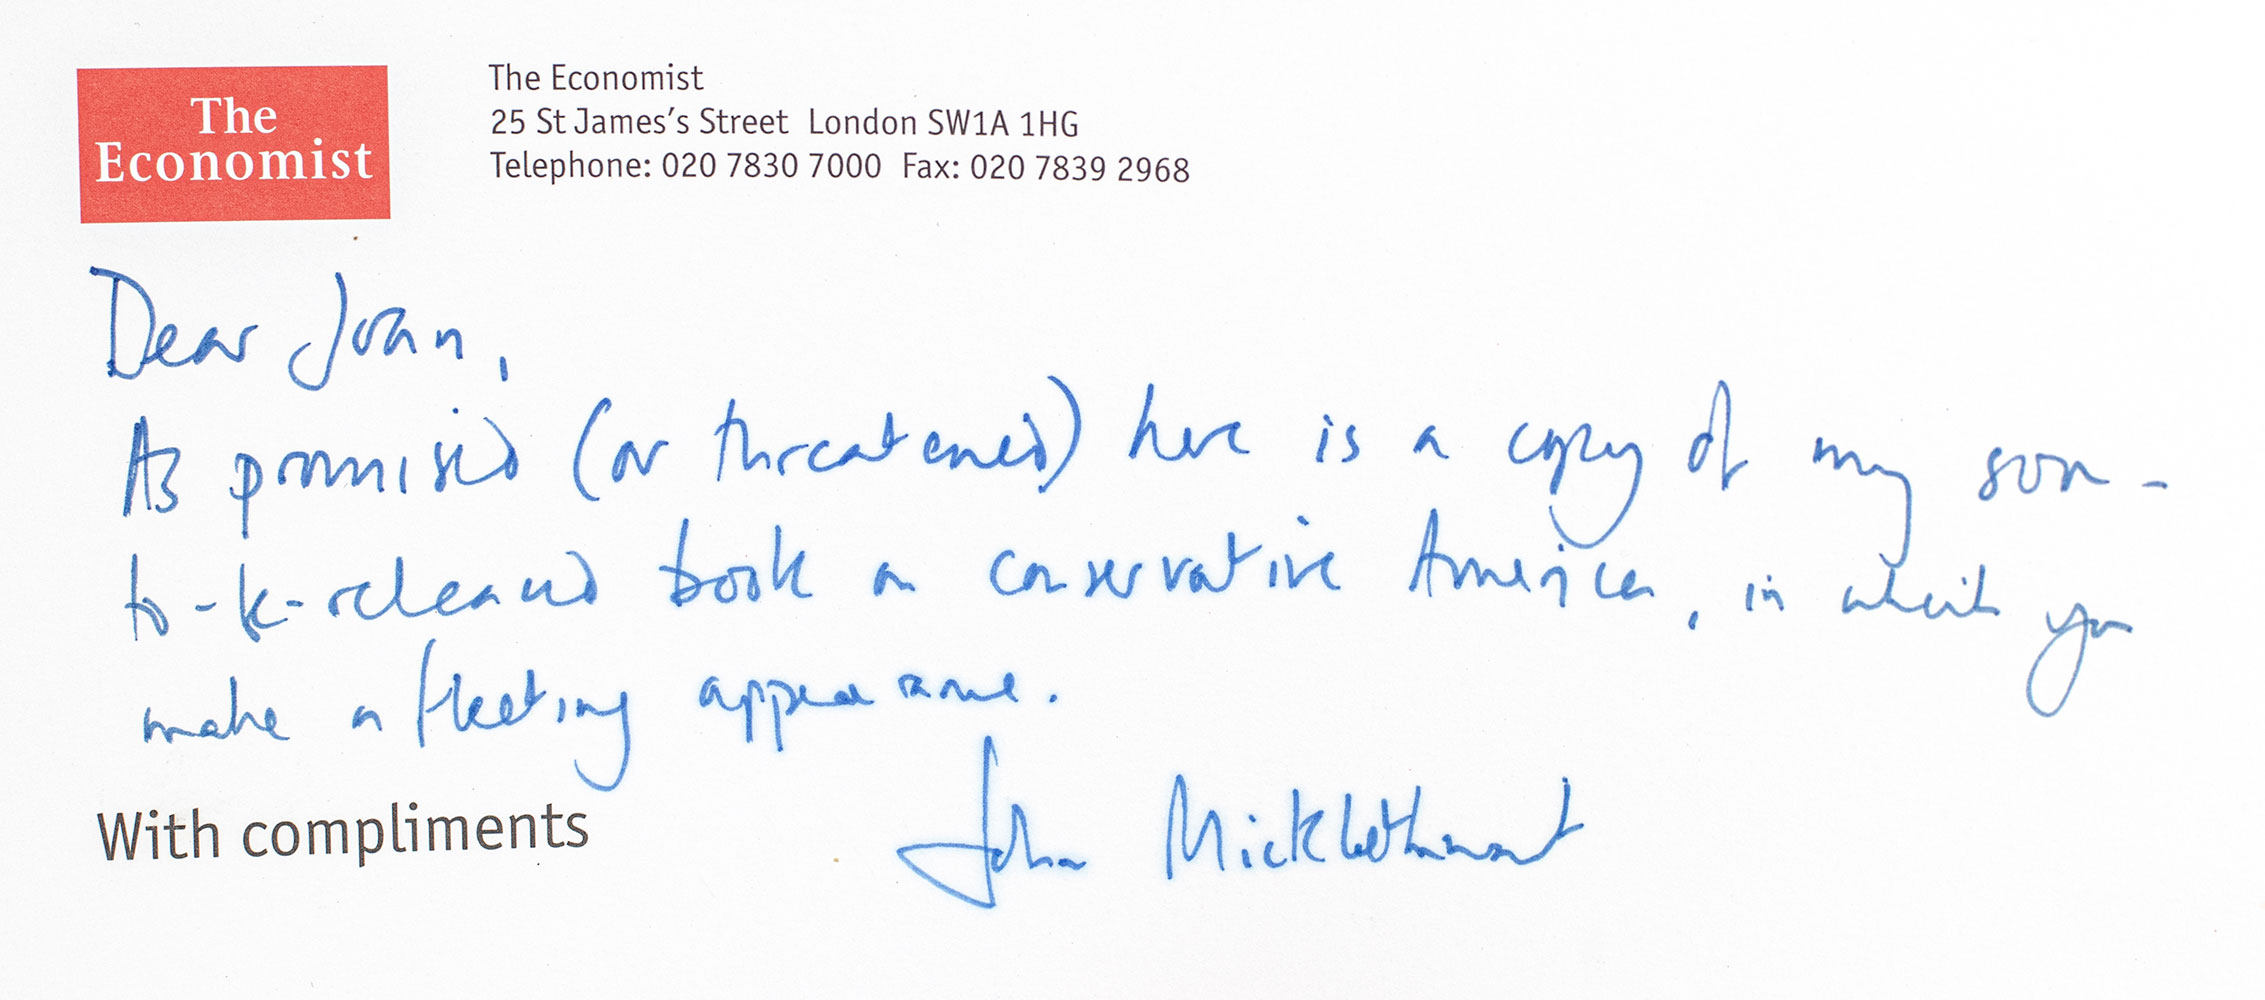 The
Economist
The Economist
25 St James's Street London SW1A 1HG
Telephone: 020 7830 7000 Fax: 020 7839 2968
Dear Joan,
As promised (or threatened) here is a copy of my soon-
to-be-released book on conservative America, in which you
make a fleeting appearance.
With compliments
John Micklethwait